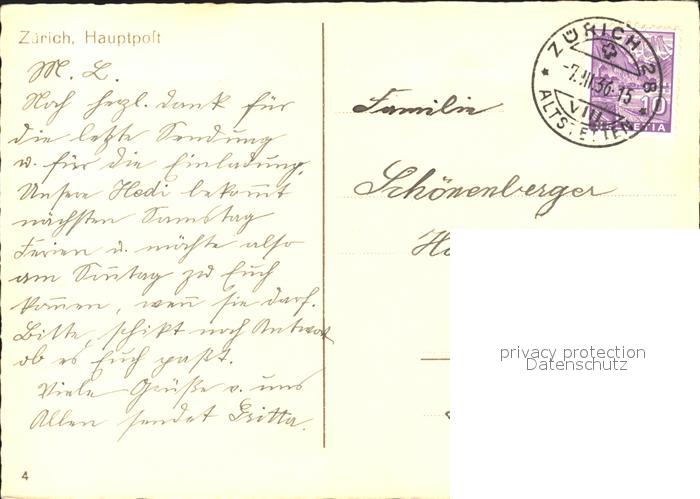 Zürich, Hauptpost
M. L.
Noch herzl. Dank für
die letzte Sendung
u. für die Einladung.
Unsere Hedi bekommt
nächsten Samstag
Ferien u. möchte also
am Sonntag zu Euch
kommen, wenn sie darf.
Bitte, schikt noch Antwort
ob es Euch paßt.
Viele Grüße v. uns
Allen sendet Gritta.
4
Familie
Schönenberger
ZÜRICH 28
-7.III.36-15
VIII
ALTSTETTEN
10
HELVETIA
privacy protection
Datenschutz